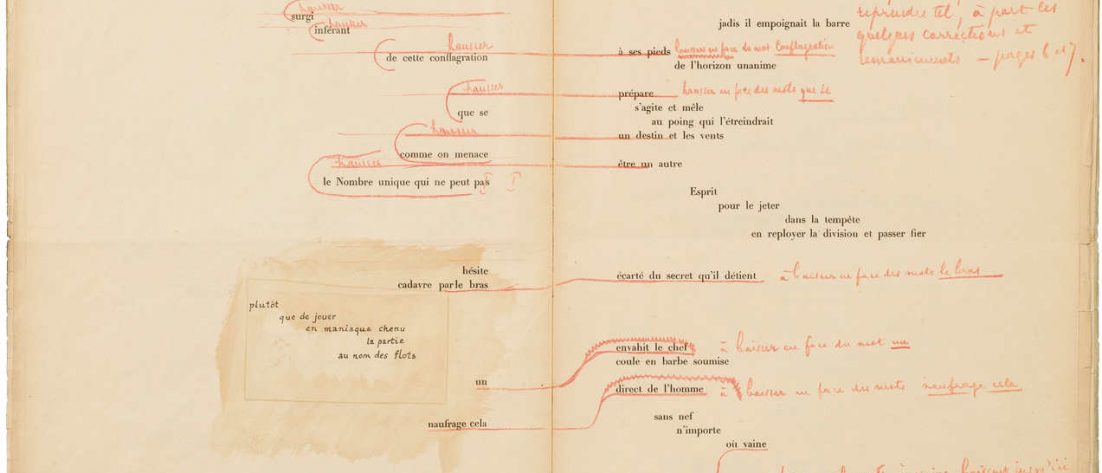 hausser
surgi
hausser
inférant
hausser
de cette conflagration
hausser
que se
hausser
comme on menace
hausser
le Nombre unique qui ne peut pas
hésite
cadavre par le bras
plutôt
que de jouer
en maniaque chenu
la partie
au nom des flots
un
naufrage cela
jadis il empoignait la barre
reprendre tel, à part les
quelques corrections et
remaniements — pages 6 et 7.
à ses pieds hausser en face du mot Conflagration
de l'horizon unanime
prépare hausser en face des mots que se
s'agite et mêle
au poing qui l'étreindrait
un destin et les vents
être un autre
Esprit
pour le jeter
dans la tempête
en reployer la division et passer fier
écarté du secret qu'il détient à baisser en face des mots le bras
envahit le chef à baisser en face du mot un
coule en barbe soumise
direct de l'homme à baisser en face des mots naufrage cela
sans nef
n'importe
où vaine